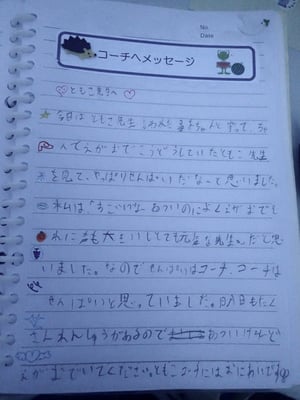 No.
Date
コーチへメッセージ
♡ともこ先生へ♡
今日はともこ先生に言われた事をちゃんとやって、ち
んでえがおでこうどうしていたともこ先生
を見て、やっぱりせんぱいだなーって思いました。
私は、「すごいな。あついのによくえがおでし
れに声も大きいしとても元気な先生。」だと思
いました。なのでせんぱいはコーチ、コーチは
せんぱいと思っていました。明日もたく
さんれんしゅうがあるのであついけど
えがおでいてください。ともこコーチにはおにあいです